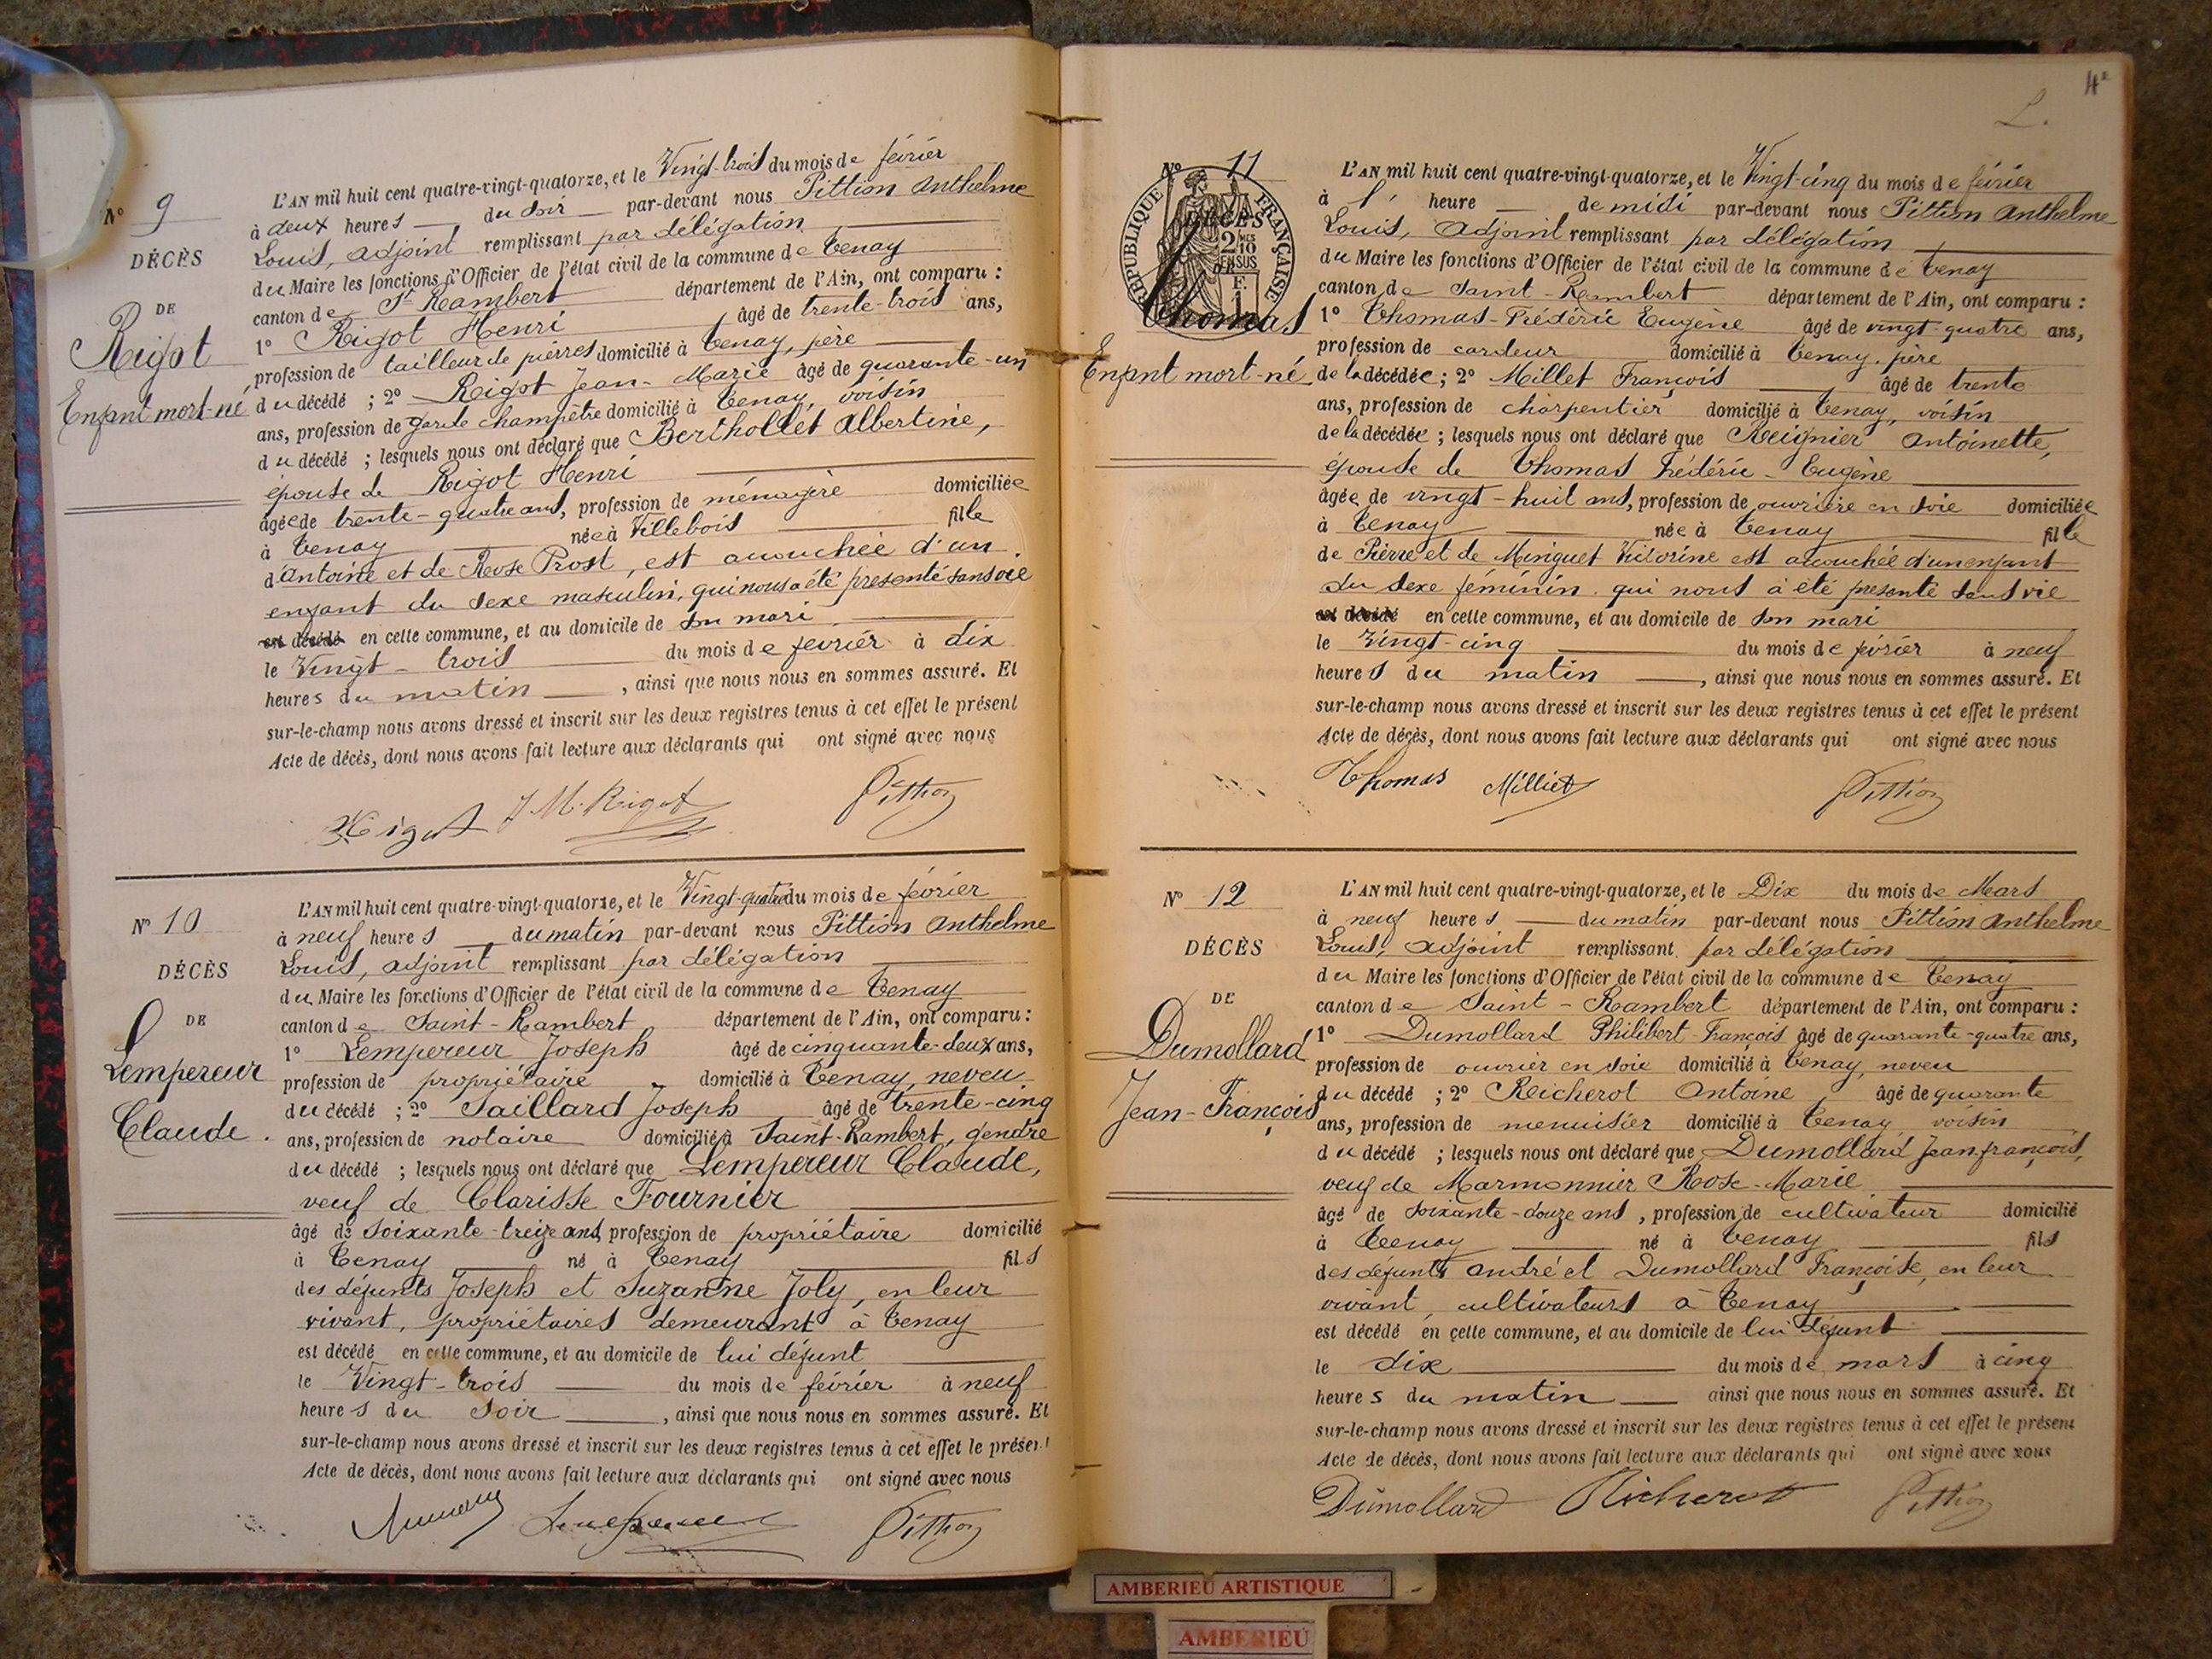 Nº 9
DÉCÈS
DE
Rigot
Enfant mort-né
L'AN mil huit cent quatre-vingt-quatorze, et le Vingt-trois du mois de février
à deux heures du soir par-devant nous Pittion Anthelme
Louis, adjoint remplissant par délégation
du Maire les fonctions d'Officier de l'état civil de la commune de Tenay
canton de St Rambert département de l'Ain, ont comparu :
1º Rigot Henri âgé de trente-trois ans,
profession de tailleur de pierres domicilié à Tenay, père
du décédé ; 2º Rigot Jean-Marie âgé de quarante-un
ans, profession de garde champêtre domicilié à Tenay, voisin
du décédé ; lesquels nous ont déclaré que Berthollet Albertine,
épouse de Rigot Henri
âgée de trente-quatre ans, profession de ménagère domiciliée
à Tenay née à Villebois fille
d'Antoine et de Rose Prost, est accouchée d'un
enfant du sexe masculin, qui nous a été présenté sans vie
est décédé en cette commune, et au domicile de son mari
le Vingt-trois du mois de février à dix
heures du matin , ainsi que nous nous en sommes assuré. Et
sur-le-champ nous avons dressé et inscrit sur les deux registres tenus à cet effet le présent
Acte de décès, dont nous avons fait lecture aux déclarants qui ont signé avec nous
Rigot J M. Rigot Pittion
Nº 10
DÉCÈS
DE
Lempereur
Claude.
L'AN mil huit cent quatre-vingt-quatorze, et le Vingt-quatre du mois de février
à neuf heures du matin par-devant nous Pittion Anthelme
Louis, adjoint remplissant par délégation
du Maire les fonctions d'Officier de l'état civil de la commune de Tenay
canton de Saint-Rambert département de l'Ain, ont comparu :
1º Lempereur Joseph âgé de cinquante-deux ans,
profession de propriétaire domicilié à Tenay, neveu
du décédé ; 2º Saillard Joseph âgé de trente-cinq
ans, profession de notaire domicilié à Saint-Rambert, gendre
du décédé ; lesquels nous ont déclaré que Lempereur Claude,
veuf de Clarisse Fournier
âgé de soixante-treize ans, profession de propriétaire domicilié
à Tenay né à Tenay fils
des défunts Joseph et Suzanne Joly, en leur
vivant, propriétaires demeurant à Tenay
est décédé en cette commune, et au domicile de lui défunt
le Vingt-trois du mois de février à neuf
heures du soir , ainsi que nous nous en sommes assuré. Et
sur-le-champ nous avons dressé et inscrit sur les deux registres tenus à cet effet le présent
Acte de décès, dont nous avons fait lecture aux déclarants qui ont signé avec nous
Lempereur Pittion
Nº 11
RÉPUBLIQUE FRANÇAISE
2 10 EN SUS
DÉCÈS
Thomas
Enfant mort-né
L'AN mil huit cent quatre-vingt-quatorze, et le Vingt-cinq du mois de février
à 1' heure de midi par-devant nous Pittion Anthelme
Louis, Adjoint remplissant par délégation
du Maire les fonctions d'Officier de l'état civil de la commune de Tenay
canton de Saint-Rambert département de l'Ain, ont comparu :
1º Thomas-Frédéric Eugène âgé de vingt-quatre ans,
profession de cardeur domicilié à Tenay, père
de la décédée ; 2º Millet François âgé de trente
ans, profession de charpentier domicilié à Tenay, voisin
de la décédée ; lesquels nous ont déclaré que Reignier Antoinette,
épouse de Thomas Frédéric-Eugène
âgée de vingt-huit ans, profession de ouvrière en soie domiciliée
à Tenay née à Tenay fille
de Pierre et de Minguet Victorine est accouchée d'un enfant
du sexe féminin qui nous à été présenté sans vie
est décédé en cette commune, et au domicile de son mari
le Vingt-cinq du mois de février à neuf
heures du matin , ainsi que nous nous en sommes assuré. Et
sur-le-champ nous avons dressé et inscrit sur les deux registres tenus à cet effet le présent
Acte de décès, dont nous avons fait lecture aux déclarants qui ont signé avec nous
Thomas Milliet Pittion
Nº 12
DÉCÈS
DE
Dumollard
Jean-François
L'AN mil huit cent quatre-vingt-quatorze, et le Dix du mois de Mars
à neuf heures du matin par-devant nous Pittion Anthelme
Louis, adjoint remplissant par délégation
du Maire les fonctions d'Officier de l'état civil de la commune de Tenay
canton de Saint-Rambert département de l'Ain, ont comparu :
1º Dumollard Philibert-François âgé de quarante-quatre ans,
profession de ouvrier en soie domicilié à Tenay, neveu
du décédé ; 2º Reicherot Antoine âgé de quarante
ans, profession de menuisier domicilié à Tenay voisin
du décédé ; lesquels nous ont déclaré que Dumollard Jean françois,
veuf de Marmonnier Rose-Marie
âgé de soixante-douze ans , profession de cultivateur domicilié
à Tenay né à Tenay fils
des défunts André et Dumollard Françoise, en leur
vivant, cultivateurs à Tenay
est décédé en cette commune, et au domicile de lui défunt
le dix du mois de mars à cinq
heures du matin ainsi que nous nous en sommes assuré. Et
sur-le-champ nous avons dressé et inscrit sur les deux registres tenus à cet effet le présent
Acte de décès, dont nous avons fait lecture aux déclarants qui ont signé avec nous
Dumollard Richerot Pittion
AMBERIEU ARTISTIQUE
AMBERIEU